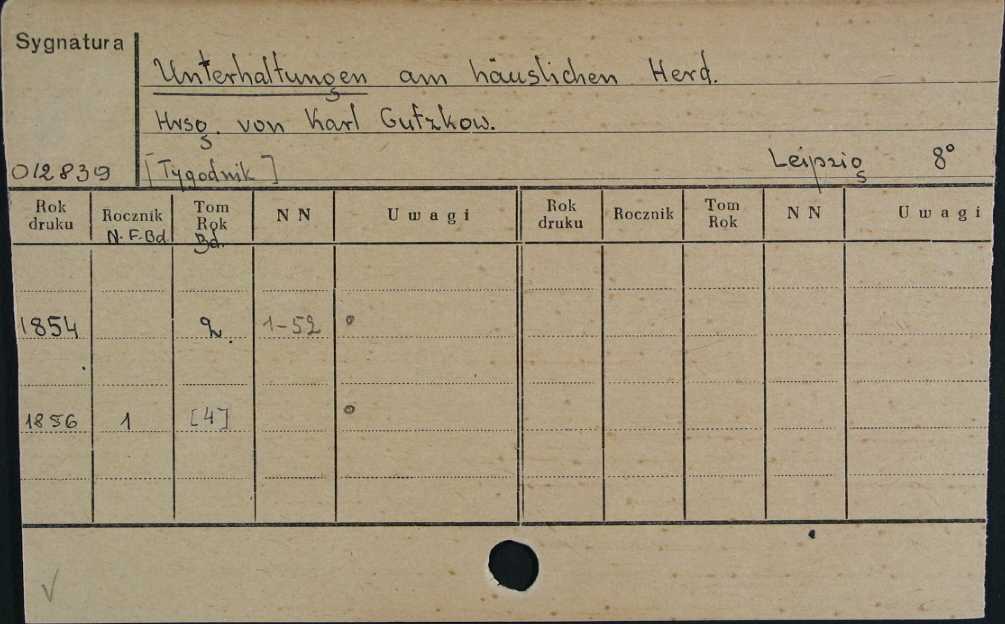 Sygnatura
Unterhaltungen am häuslichen Herd.
Hrsg. von Karl Gutzkow.
Leipzig 8°
012839 [Tygodnik]
Rok druku Rocznik N.F.Bd. Tom Rok Bd. N N Uwagi Rok druku Rocznik Tom Rok N N Uwagi
1854 2. 1-52
1856 1 [4]